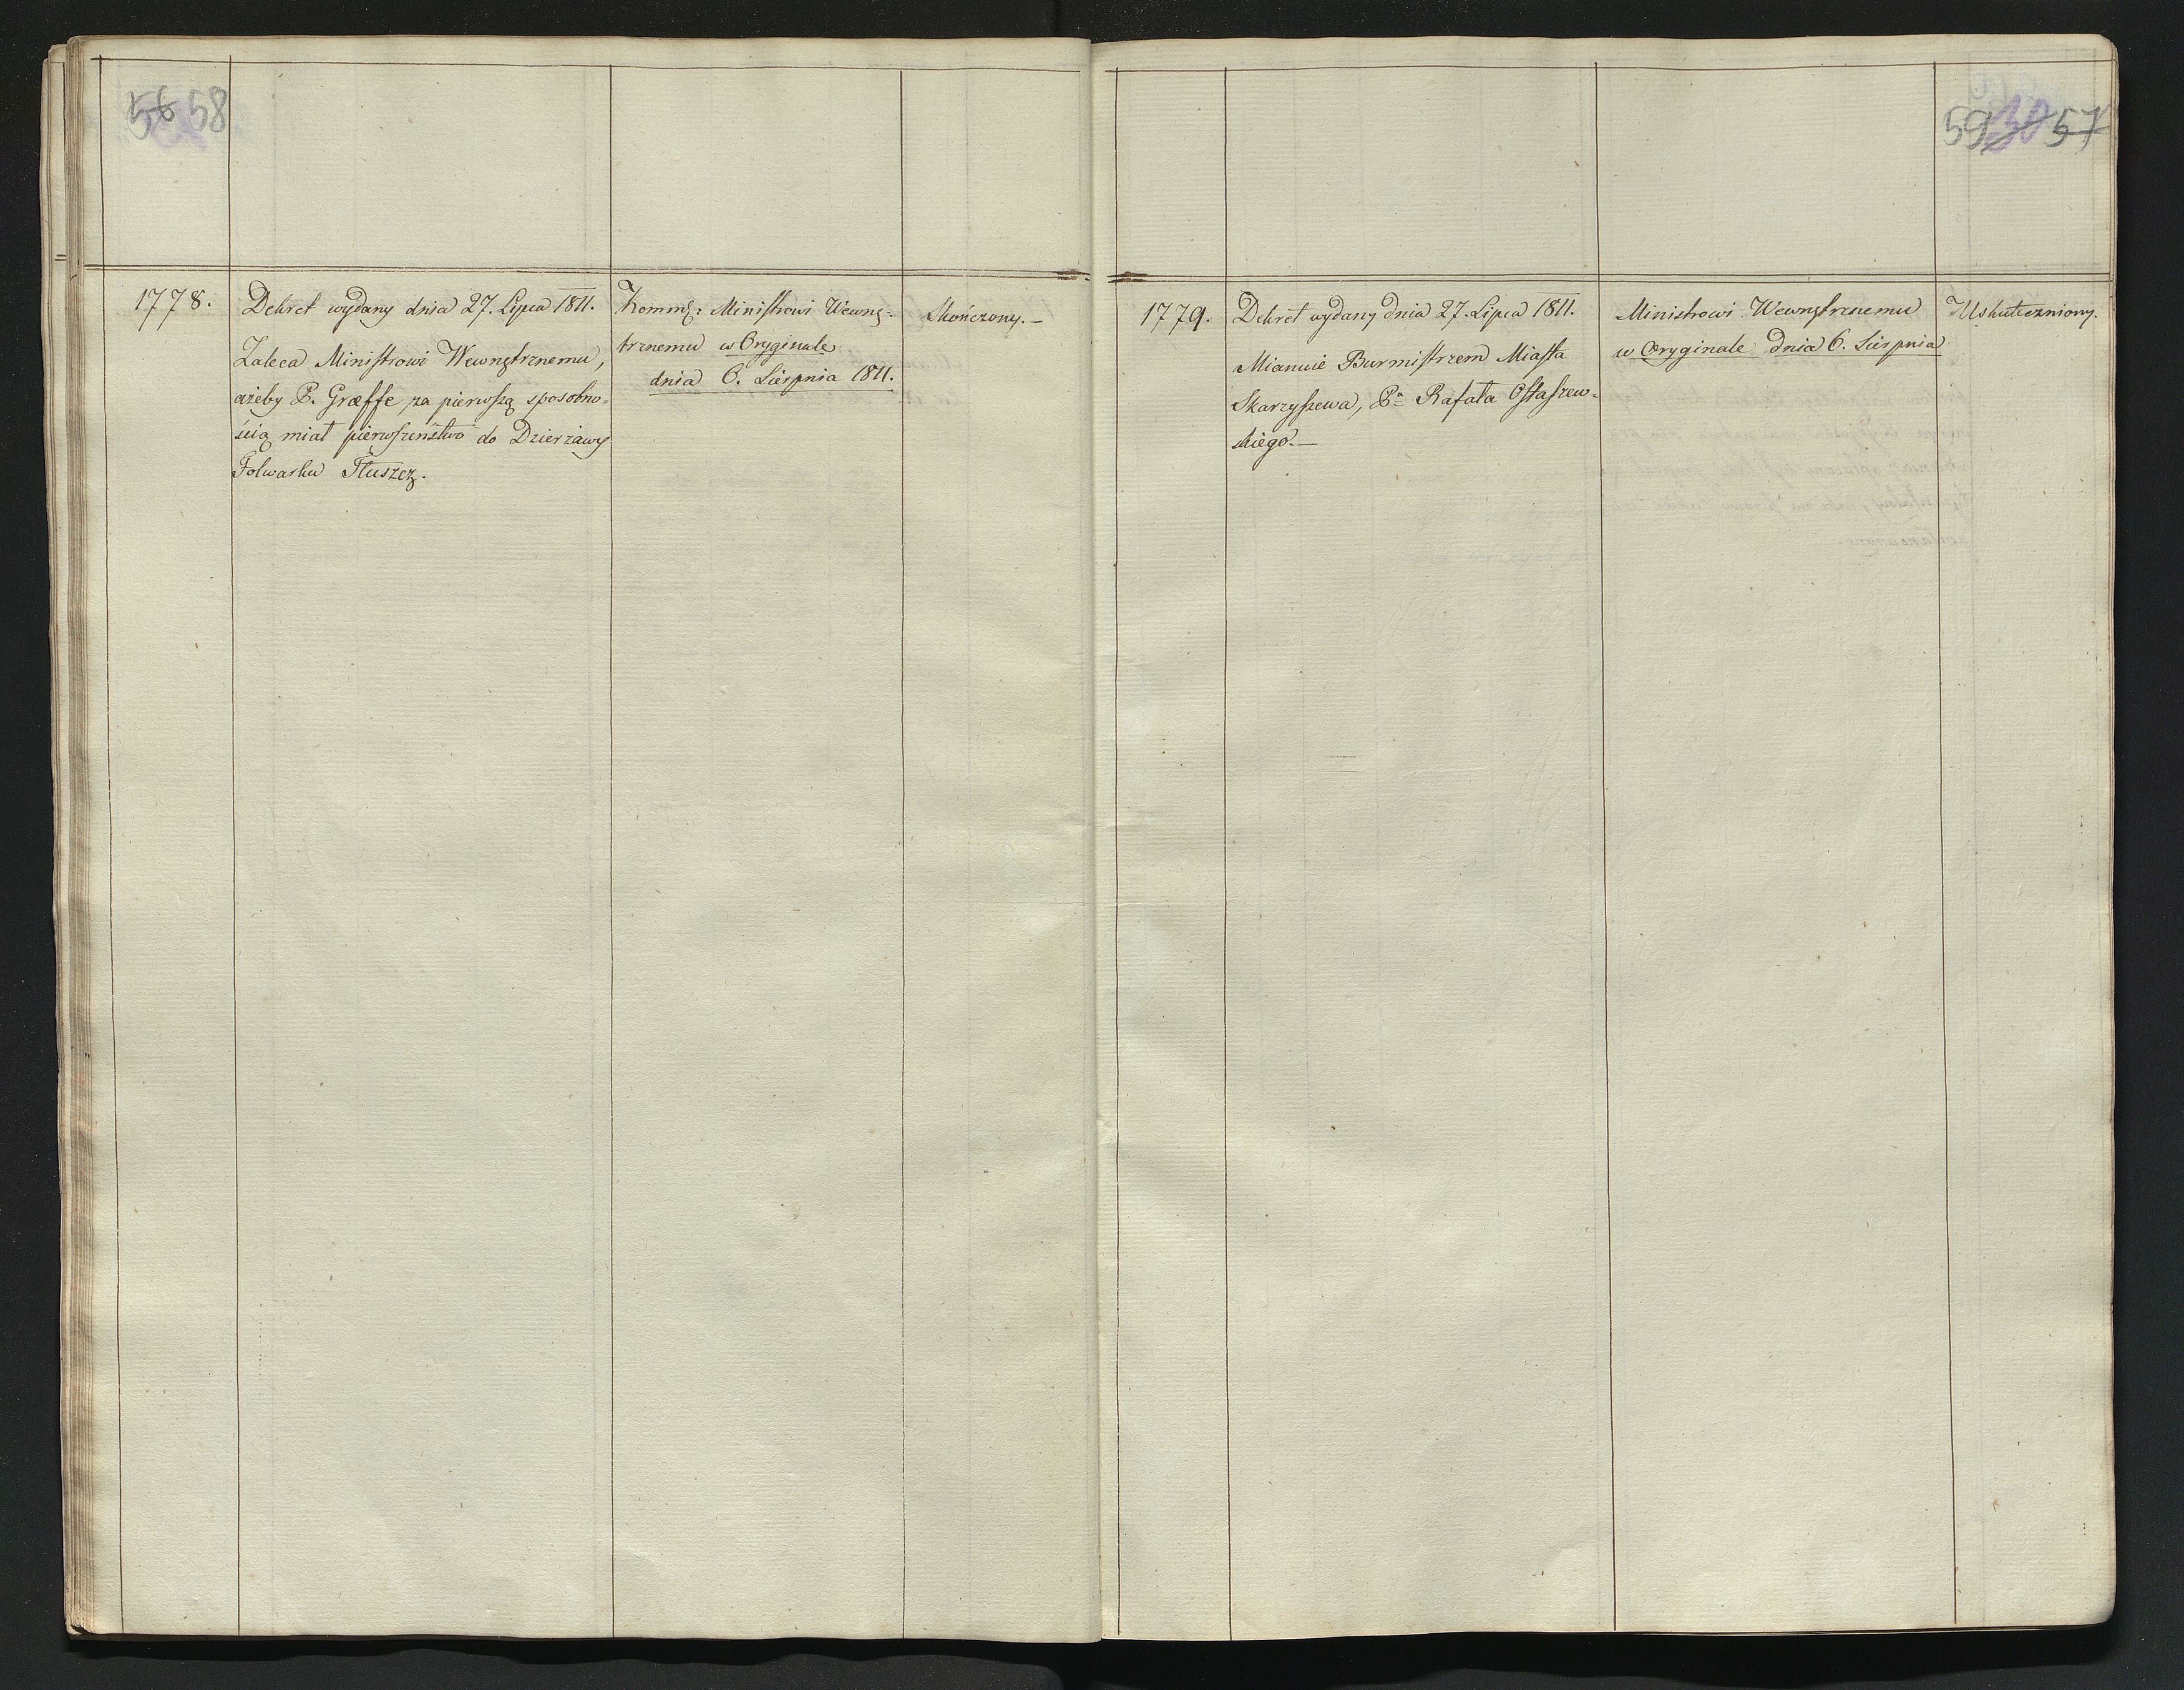 56 58
1778.
Dekret wydany dnia 27. Lipca 1811.
Zaleca Ministrowi Wewnętrznemu,
ażeby P. Græffe za pierwszą sposobno-
ścią miał pierwszeństwo do Dzierzawy
Folwarku Tłuszcz.
Kommę: Ministrowi Wewnę-
trznemu w Oryginale
dnia 6. Sierpnia 1811.
Skończony.—
59 30 57
1779.
Dekret wydany dnia 27. Lipca 1811.
Mianuie Burmistrzem Miasta
Skarzyszewa, Pa Rafała Ostaszew-
skiego.—
Ministrowi Wewnętrznemu
w Oryginale dnia 6. Sierpnia
Uskuteczniony.